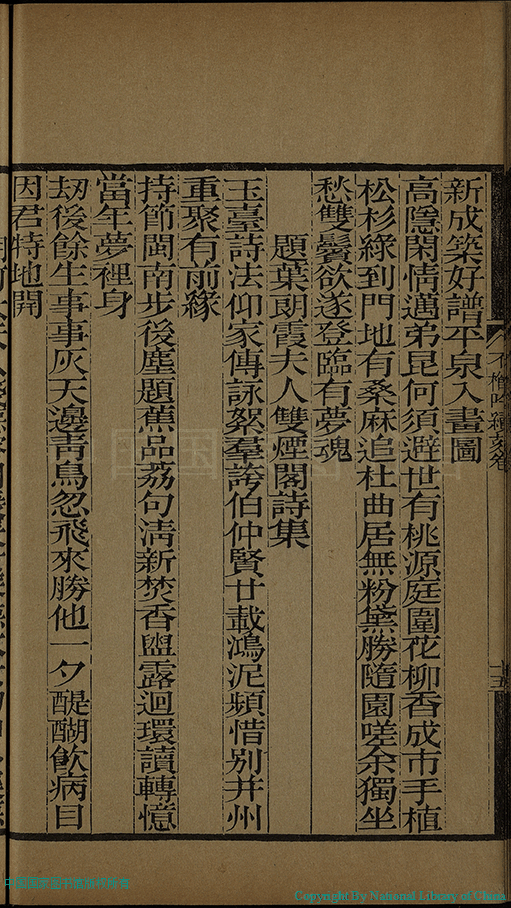 新成築好譜平泉入畫圖
高隱閑情邁弟昆何須避世有桃源庭圍花柳香成市手植
松杉綠到門地有桑麻追杜曲居無粉黛勝隨園嗟余獨坐
愁雙鬢欲遂登臨有夢魂
題葉朗霞夫人雙煙閣詩集
玉臺詩法仰家傳詠絮羣誇伯仲賢廿載鴻泥頻惜別并州
重聚有前緣
持節閩南步後塵題蕉品荔句淸新焚香盥露迴環讀轉憶
當年夢裡身
刼後餘生事事灰天邊靑鳥忽飛來勝他一夕醍醐飮病目
因君特地開
十五
Copyright By National Library of China